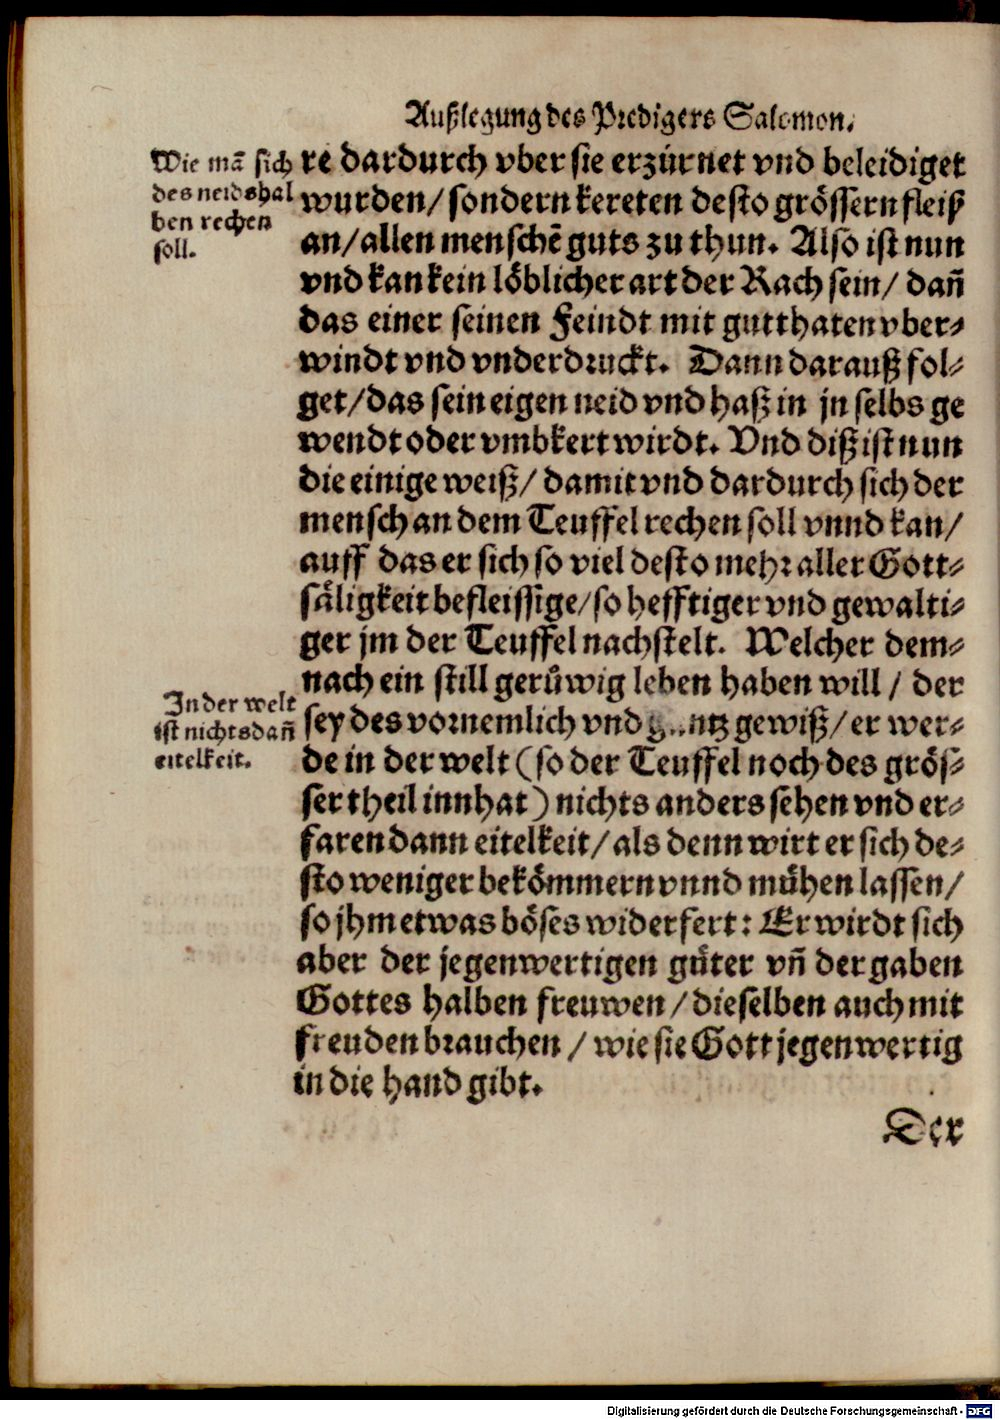 Außlegung des Predigers Salomon.
Wie mã sich
des neids hal
ben rechen
soll.
re dardurch vber sie erzürnet vnd beleidiget
wurden/ sondern kereten desto grössern fleiß
an/ allen menschẽ guts zu thun. Also ist nun
vnd kan kein löblicher art der Rach sein/ dañ
das einer seinen Feindt mit gutthaten vber-
windt vnd vnderdruckt. Dann darauß fol-
get/ das sein eigen neid vnd haß in jn selbs ge
wendt oder vmbkert wirdt. Vnd diß ist nun
die einige weiß/ damit vnd dardurch sich der
mensch an dem Teuffel rechen soll vnnd kan/
auff das er sich so viel desto mehr aller Gott-
säligkeit befleissige/ so hefftiger vnd gewalti-
ger jm der Teuffel nachstelt. Welcher dem-
nach ein still gerůwig leben haben will/ der
In der welt
ist nichts dañ
eitelkeit.
sey des vornemlich vnd gantz gewiß/ er wer-
de in der welt (so der Teuffel noch des grös-
ser theil innhat) nichts anders sehen vnd er-
faren dann eitelkeit/ als denn wirt er sich de-
sto weniger bekömmern vnnd mühen lassen/
so jhm etwas böses widerfert: Er wirdt sich
aber der jegenwertigen güter vñ der gaben
Gottes halben freuwen/ dieselben auch mit
freuden brauchen/ wie sie Gott jegenwertig
in die hand gibt.
Der
Digitalisierung gefördert durch die Deutsche Forschungsgemeinschaft - DFG